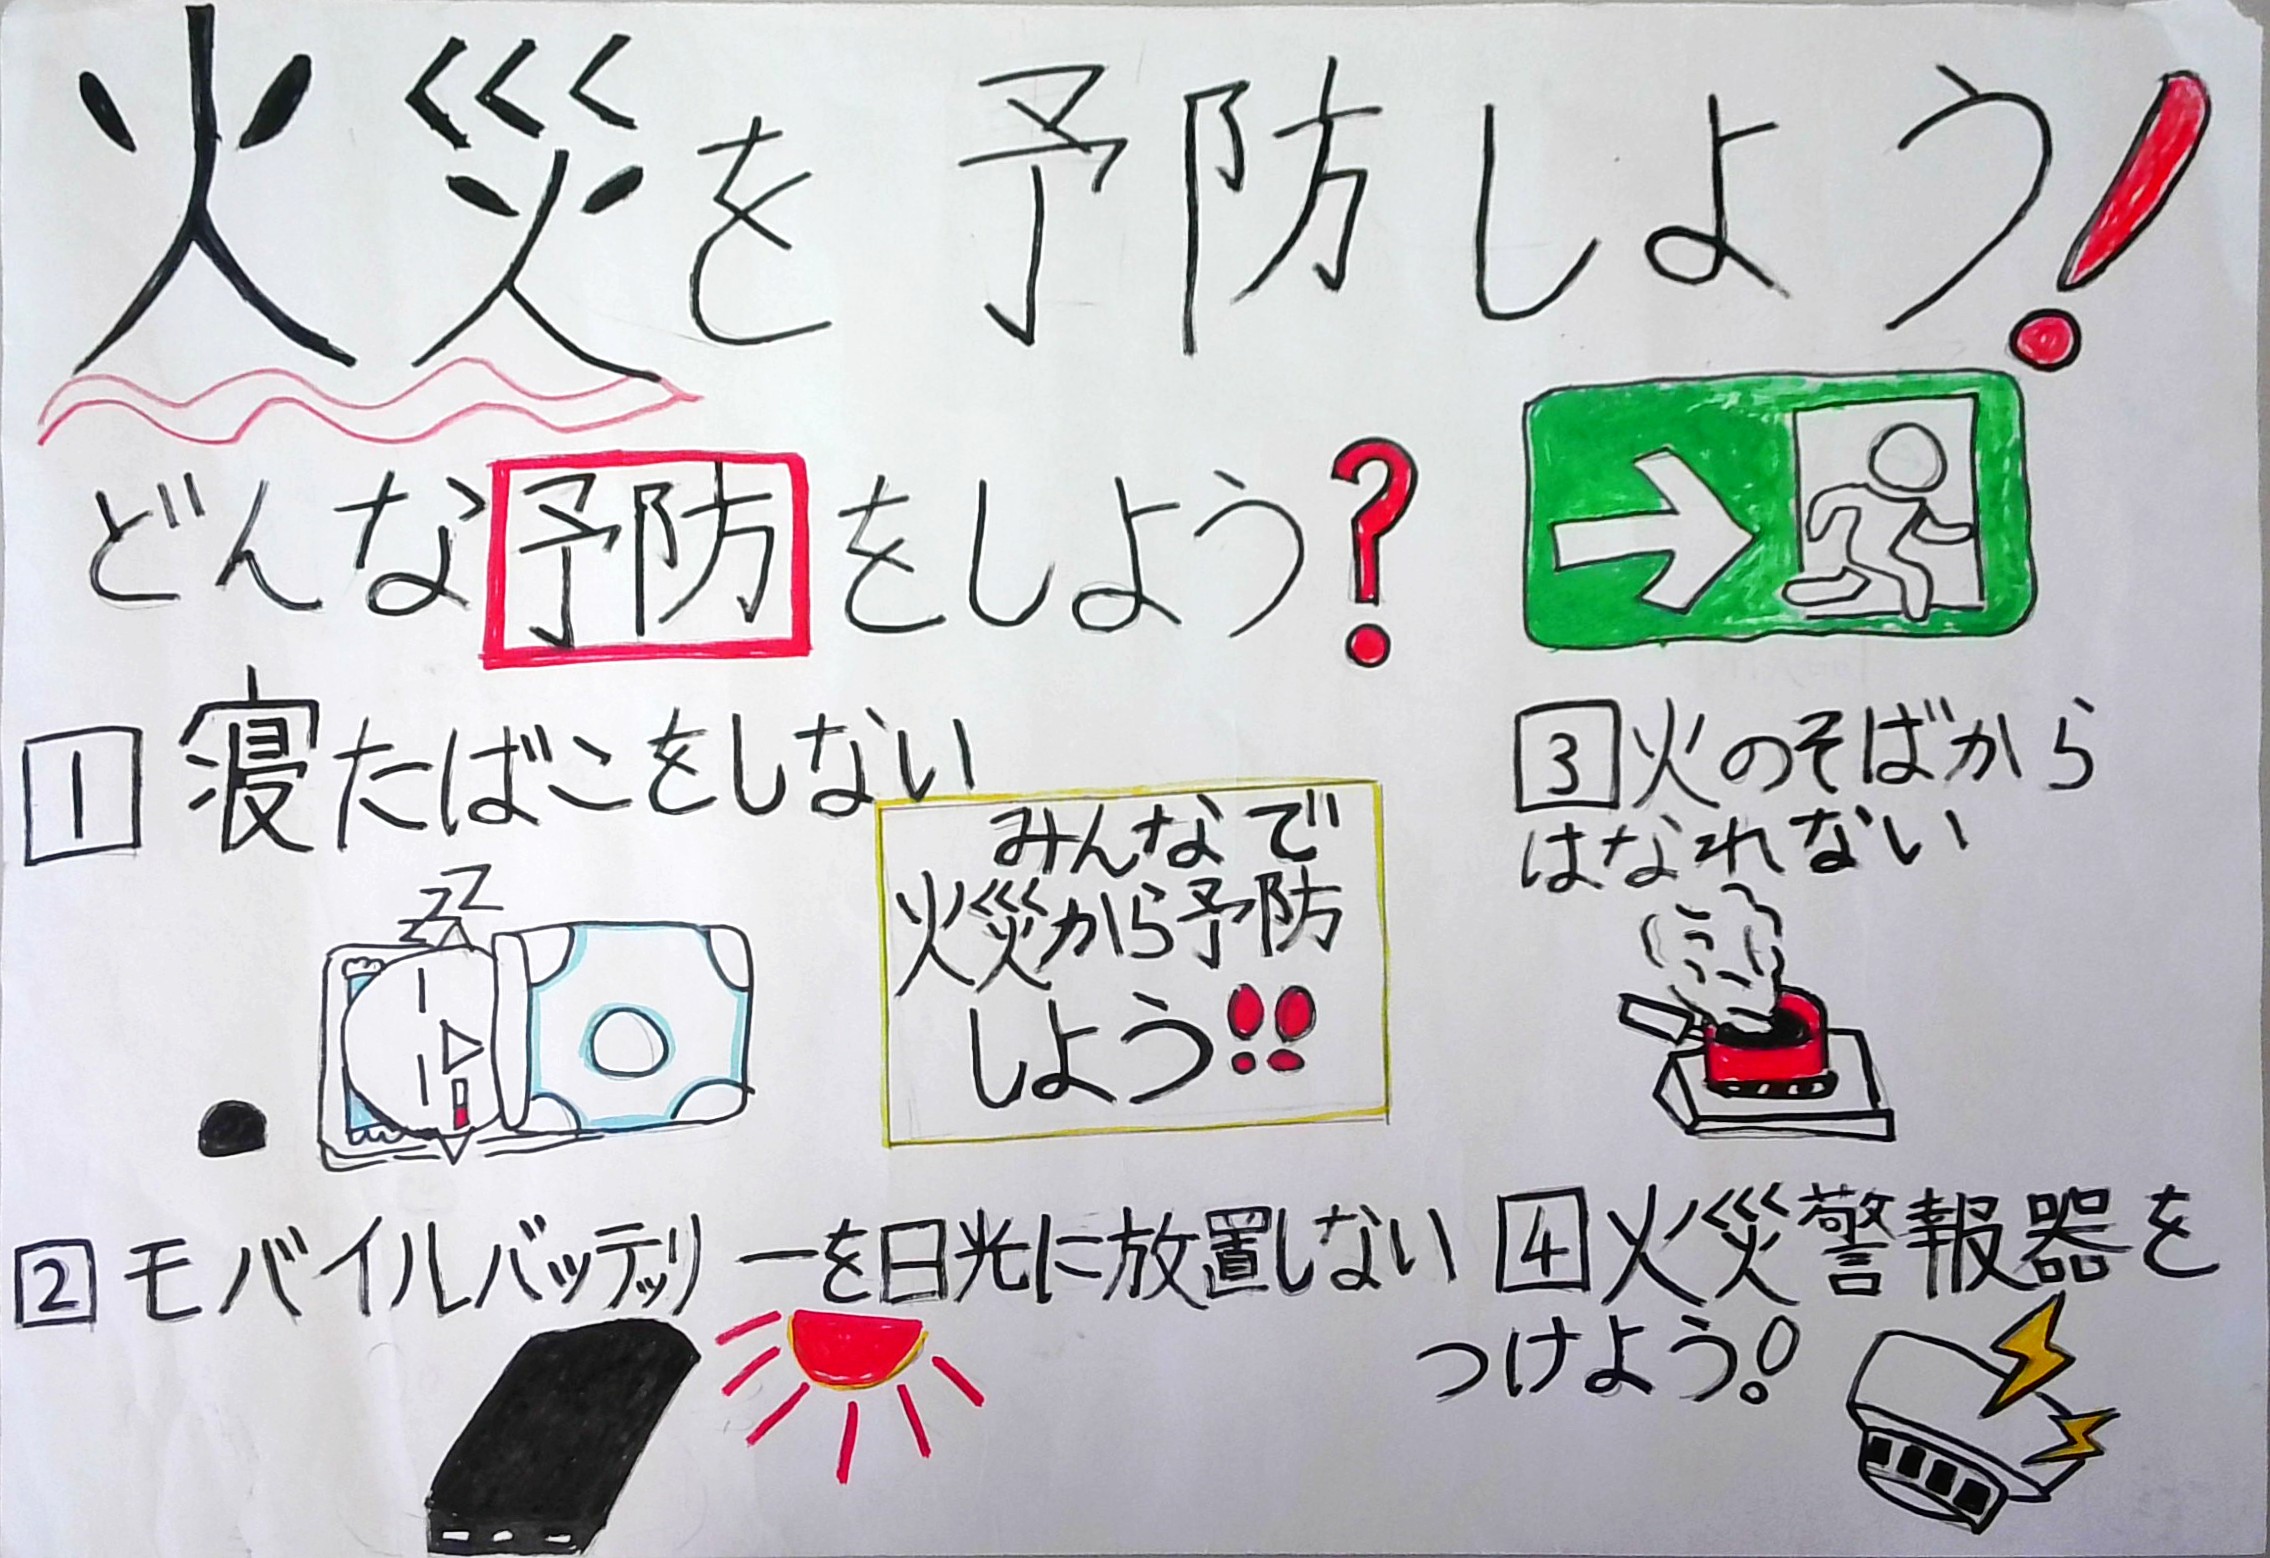 火災を予防しよう!
どんな予防をしよう?
1 寝たばこをしない
zzz
みんなで
火災から予防
しよう!!
2 モバイルバッテリーを日光に放置しない
3 火のそばから
はなれない
4 火災警報器を
つけよう!